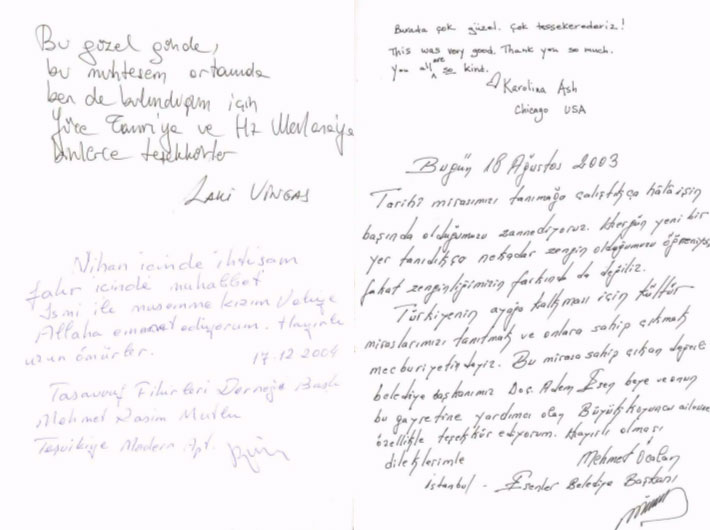 Bu güzel günde,
bu muhtesem ortamda
ben de bulunduğum için
Yüce Tanrı'ya ve Hz Mevlana'ya
binlerce teşekkürler
Laki VINGAS
Nihan içinde ihtisam
fakr icinde muhabbet
İsmi ile musemma kızım Valiye
Allaha emanet ediyorum. Hayırlı
uzun ömürler.
17-12 2004
Tasavvuf Fikirleri Derneği Başk
Mehmet Rasim Mutlu
Teşvikiye Modern Apt.
Burada çok güzel. çok tessekerederiz!
This was very good. Thank you so much.
you all are so kind.
Karolina Ash
Chicago USA
Bugün 18 Ağustos 2003
Tarihi mirasımızı tanımağa çalıştıkça hâlâ işin
başında olduğumuzu zannediyoruz. Hergün yeni bir
yer tanıdıkça nekadar zengin olduğumuzu öğreniyoruz,
fakat zenginliğimizin farkında da değiliz.
Türkiyenin ayağa kalkması için kültür
miraslarımızı tanıtmak ve onlara sahip çıkmak
mecburiyetindeyiz. Bu mirasa sahip çıkan değerli
belediye başkanımız Doç. Adem Esen beye ve onun
bu gayretine yardımcı olan Büyükkoyuncu ailesine
özellikle teşekkür ediyorum. Hayırlı olması
dileklerimle
Mehmet Öcalan
İstanbul - Esenler Belediye Başkanı